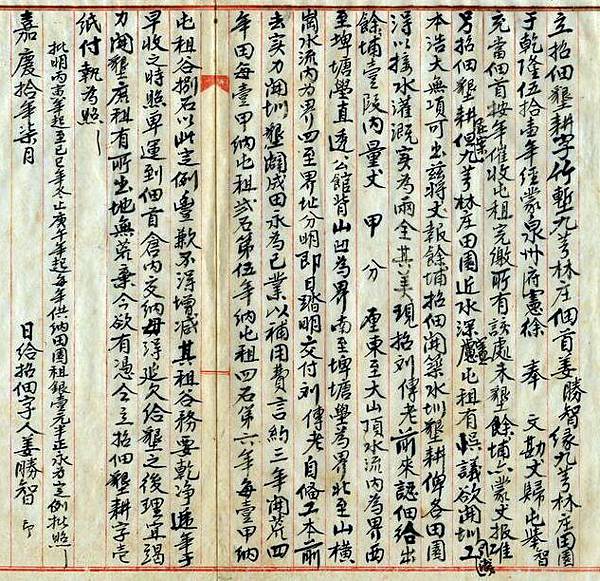 立招佃墾耕字竹塹九芎林庄佃首姜勝智緣九芎林庄田園
于乾隆伍拾壹年經蒙泉州府憲徐 奉 文勘丈歸屯舉智
充當佃首按年催收屯租完繳所有該處未墾餘埔亦蒙丈報准
另招佃墾耕但九芎林庄田園近水深慮屯租有悞議欲開圳工
本浩大無項可出茲將丈報餘埔招佃開築水圳墾耕俾各田園
得以接水灌溉实為兩全其美現招刘傳老前來認佃給出
餘埔壹叚內量丈 甲 分 厘東至大山頂水流內為界西
至埤塘學直透公館背山凹為界南至埤塘學為界北至山橫
崗水流內為界四至界址分明即日踏明交付刘傳老自偹工本前
去实力開圳墾闢成田永為己業以補用費言約三年開荒四
年田每壹甲納屯租弍石第伍年納屯租四石第六年每壹甲納
屯租谷捌石以此定例豊歉不得增减其租谷務要乾净遞年于
早收之時照单運到佃首倉內交納毋得追欠給墾之後理宜竭
力開墾庶租有所出地無荒棄今欲有憑今立招佃墾耕字壱
紙付執為照
批明丙寅年起至己巳年止庚午年起每年供納田園租銀壹元正永为定例批照
嘉慶拾年柒月 日給招佃字人姜勝智